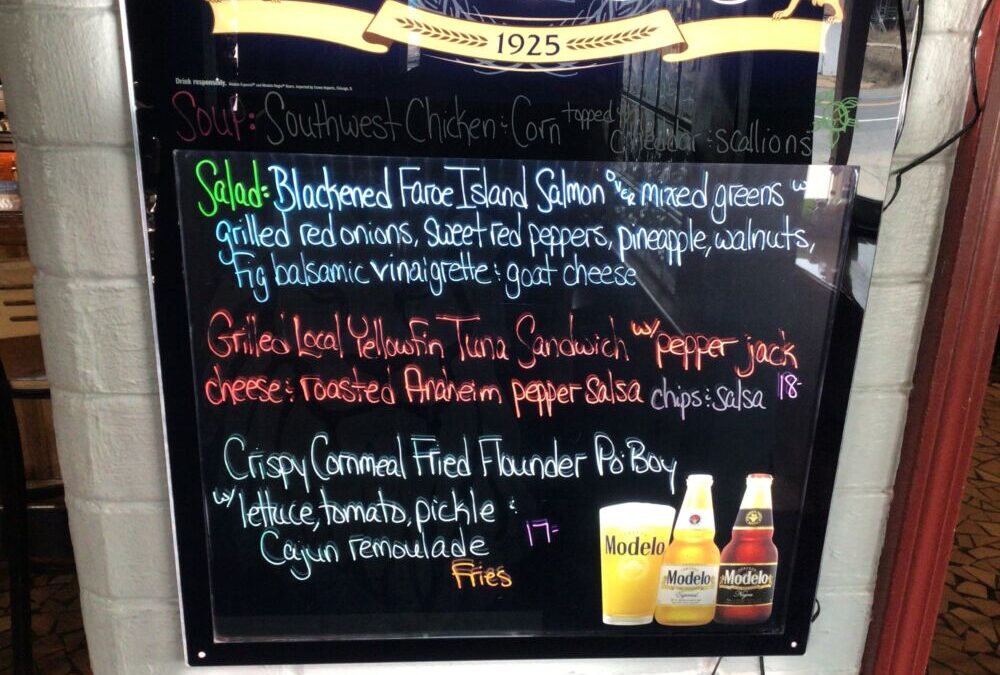 1925
Drink responsibly.
Soup: Southwest Chicken & Corn topped w/ cheddar & scallions
Salad: Blackened Faroe Island Salmon over mixed greens w/
grilled red onions, sweet red peppers, pineapple, walnuts,
fig balsamic vinaigrette & goat cheese
Grilled Local Yellowfin Tuna Sandwich w/ pepper jack
cheese & roasted Anaheim pepper salsa chips & salsa 18-
Crispy Cornmeal Fried Flounder Po-Boy
w/ lettuce, tomato, pickle &
Cajun remoulade 17-
Fries
Modelo
Modelo
Especial
Modelo
Negra